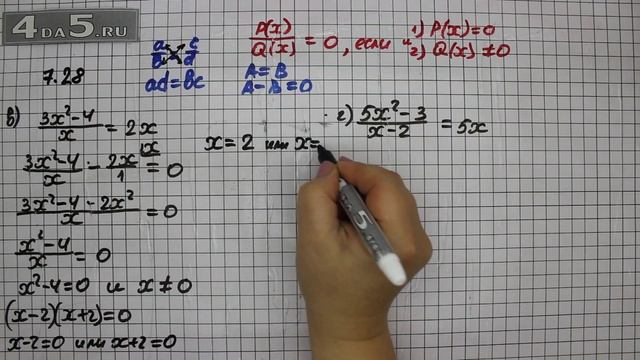 4DA5.RU
7.28
a/b = c/d
ad=bc
P(x)/Q(x) = 0, если 1) P(x)=0
и 2) Q(x) ≠0
A=B
A-B=0
в) (3x²-4)/x = 2x
(3x²-4)/x - 2x/1 \x = 0
(3x²-4-2x²)/x = 0
(x²-4)/x = 0
x²-4=0 и x≠0
(x-2)(x+2)=0
x-2=0 или x+2=0
x=2 или x=
г) (5x²-3)/(x-2) = 5x